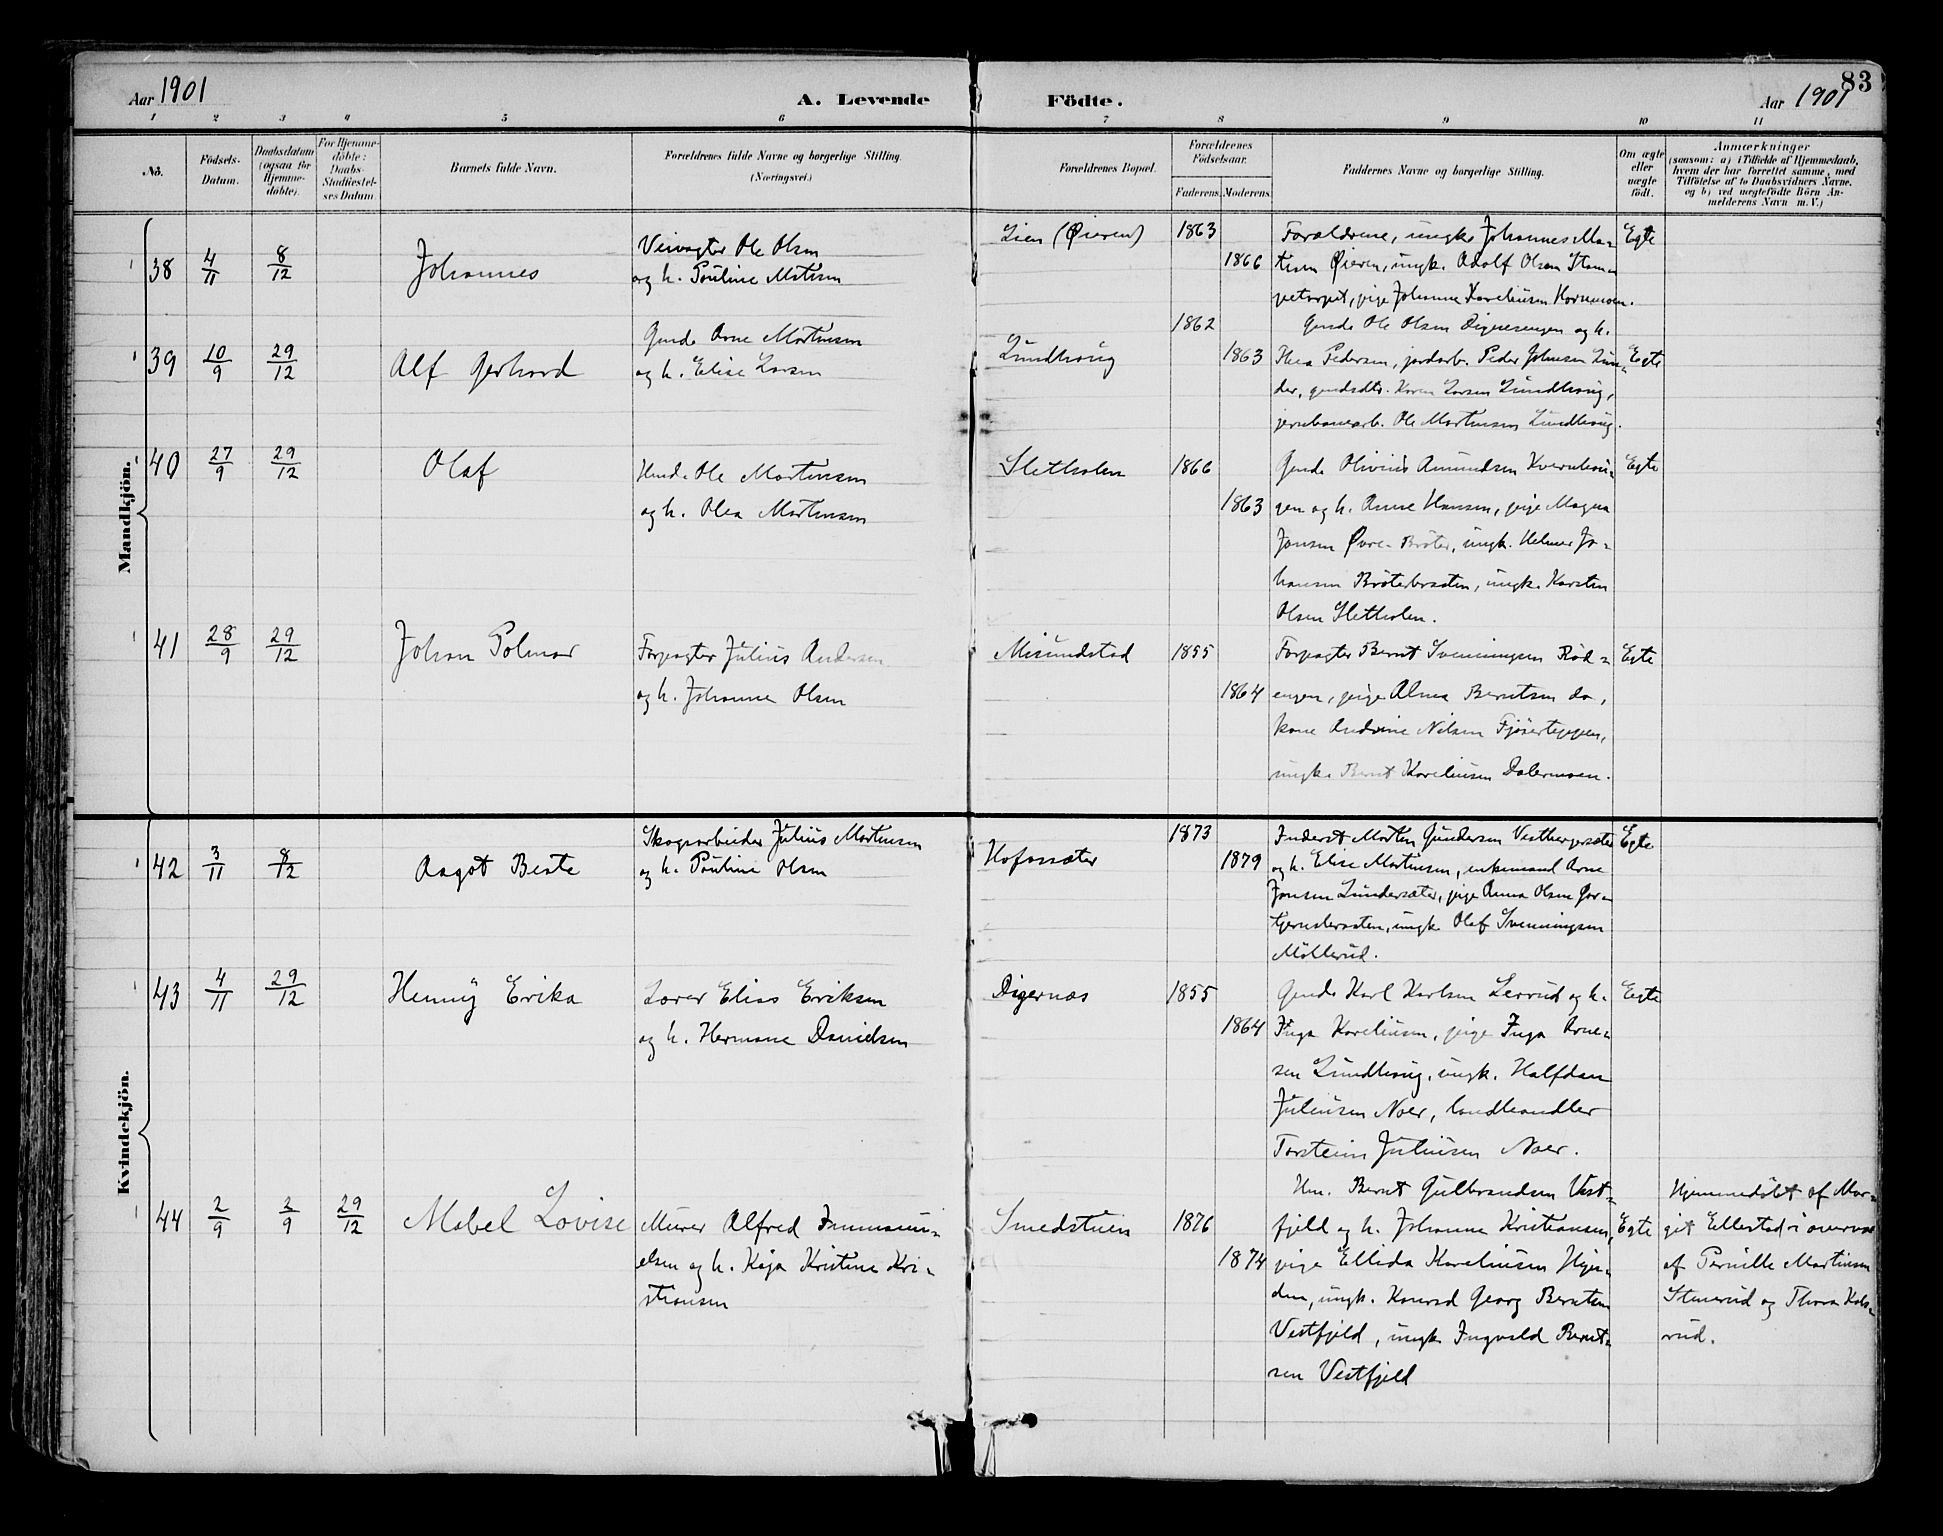 Aar 1901
A. Levende Födte.
83
Aar 1901
1 2 3 4 5 6 7 8 9 10 11
No.
Födsels-
Datum.
Daabsdatum
(ogsaa for
Hjemme-
döbte).
For Hjemme-
döbte:
Daabs-
Stadfæstel-
ses Datum.
Barnets fulde Navn.
Forældrenes fulde Navne og borgerlige Stilling.
(Næringsvei.)
Forældrenes Bopæl.
Forældrenes
Födselsaar.
Faderens. Moderens.
Faddernes Navne og borgerlige Stilling.
Om ægte
eller
uægte
födt.
Anmærkninger
(saasom: a) i Tilfælde af Hjemmedaab,
hvem der har forrettet samme, med
Tilföielse af to Daabsvidners Navne,
og b) ved uægtefödte Börn An-
melderens Navn m. V.)
Mandkjön.
38 4/11 8/12
Johannes
Veivogter Ole Olsen
og h. Pauline Matsen
Lien (Øieren)
1863
1866
Forældrene, ungk. Johannes Ma-
tisen Øieren, ungk. Adolf Olsen Stam-
petorpet, pige Johanne Kareliusen
Egte
39 10/9 29/12
Alf Gerhard
Gmd. Arne Martinsen
og h. Elise Larsen
Lundhaug
1862
1863
Gmd. Ole Olsen Digeresengen og h.
Thea Pedersen, jordarb. Peder Johnsen Lun-
der, gmdsdtr. Karen Larsen Lundhaug,
jernbanearb. Ole Martinsen Lundhaug.
Egte
40 27/9 29/12
Olaf
Hmd. Ole Martinsen
og h. Olea Martinsen
Sletholen
1866
1863
Gmd. Olivius Amundsen Kvernhau-
gen og h. Anne Hansen, pige Magna
Jonsen Øvre-Bröter, ungk. Helmer Jo-
hansen Bröterbraaten, ungk. Karsten
Olsen Sletholen.
Egte
41 28/9 29/12
Johan Polmar
Forpagter Julius Andersen
og h. Johanne Olsen
Misundstad
1855
1864
Forpagter Bernt Svenningsen Röd-
engen, pige Alma Berntsen do,
kone Andrine Nilsen Fjöserteppen,
ungk. Bernt Kareliusen Dalermoen.
Egte
Kvindekjön.
42 3/11 8/12
Aagot Beate
Skogsarbeider Julius Martinsen
og h. Pauline Olsen
Hofosæter
1873
1879
Inderst Morten Gundersen Vestbergsæter
og h. Elise Martinsen, enkemand Arne
Jonsen Lundersæter, pige Anna Olsen Gor-
ungk. Olaf Svenningsen
Möllerud.
Egte
43 4/11 29/12
Henny Erika
Lærer Elias Eriksen
og h. Hermane Danielsen
Digernæs
1855
1864
Gmd. Karl Karlsen Lerrud og h.
Inga Kareliusen, pige Inga Arne-
sen Lundhaug, ungk. Halfdan
Juliusen Noer, landhandler
Torstein Juliusen Noer.
Egte
44 2/9 3/9 29/12
Mabel Lovise
Murer Alfred Immanu-
elsen og h. Kaja Kristine Kri-
stiansen
Smedstuen
1876
1874
Hm. Bernt Gulbrandsen Vest-
fjeld og h. Johanne Kristiansen,
pige Ellida Kareliusen
ungk. Konrad Georg Berntsen
Vestfjeld, ungk. Ingvald Bernt-
sen Vestfjeld
Egte
Hjemmedöbt af Mar-
git Ellestad i overvær
af Pernille Martinsen
Stenerud og Thora Kols-
rud.